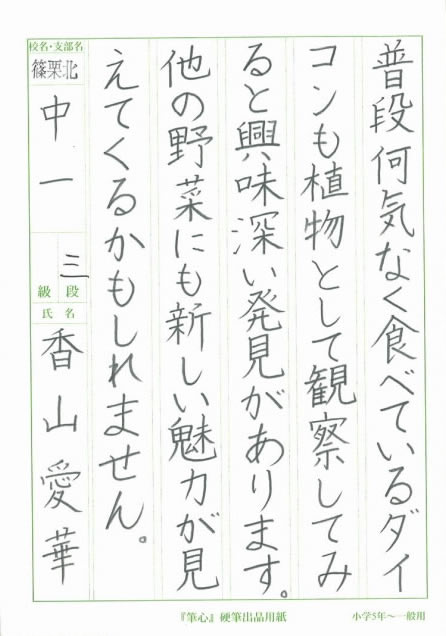 普段何気なく食べているダイ
コンも植物として観察してみ
ると興味深い発見があります。
他の野菜にも新しい魅力が見
えてくるかもしれません。
校名・支部名
篠栗北
中一
三
級 段
氏名
香山愛華
『筆心』硬筆出品用紙
小学5年～一般用